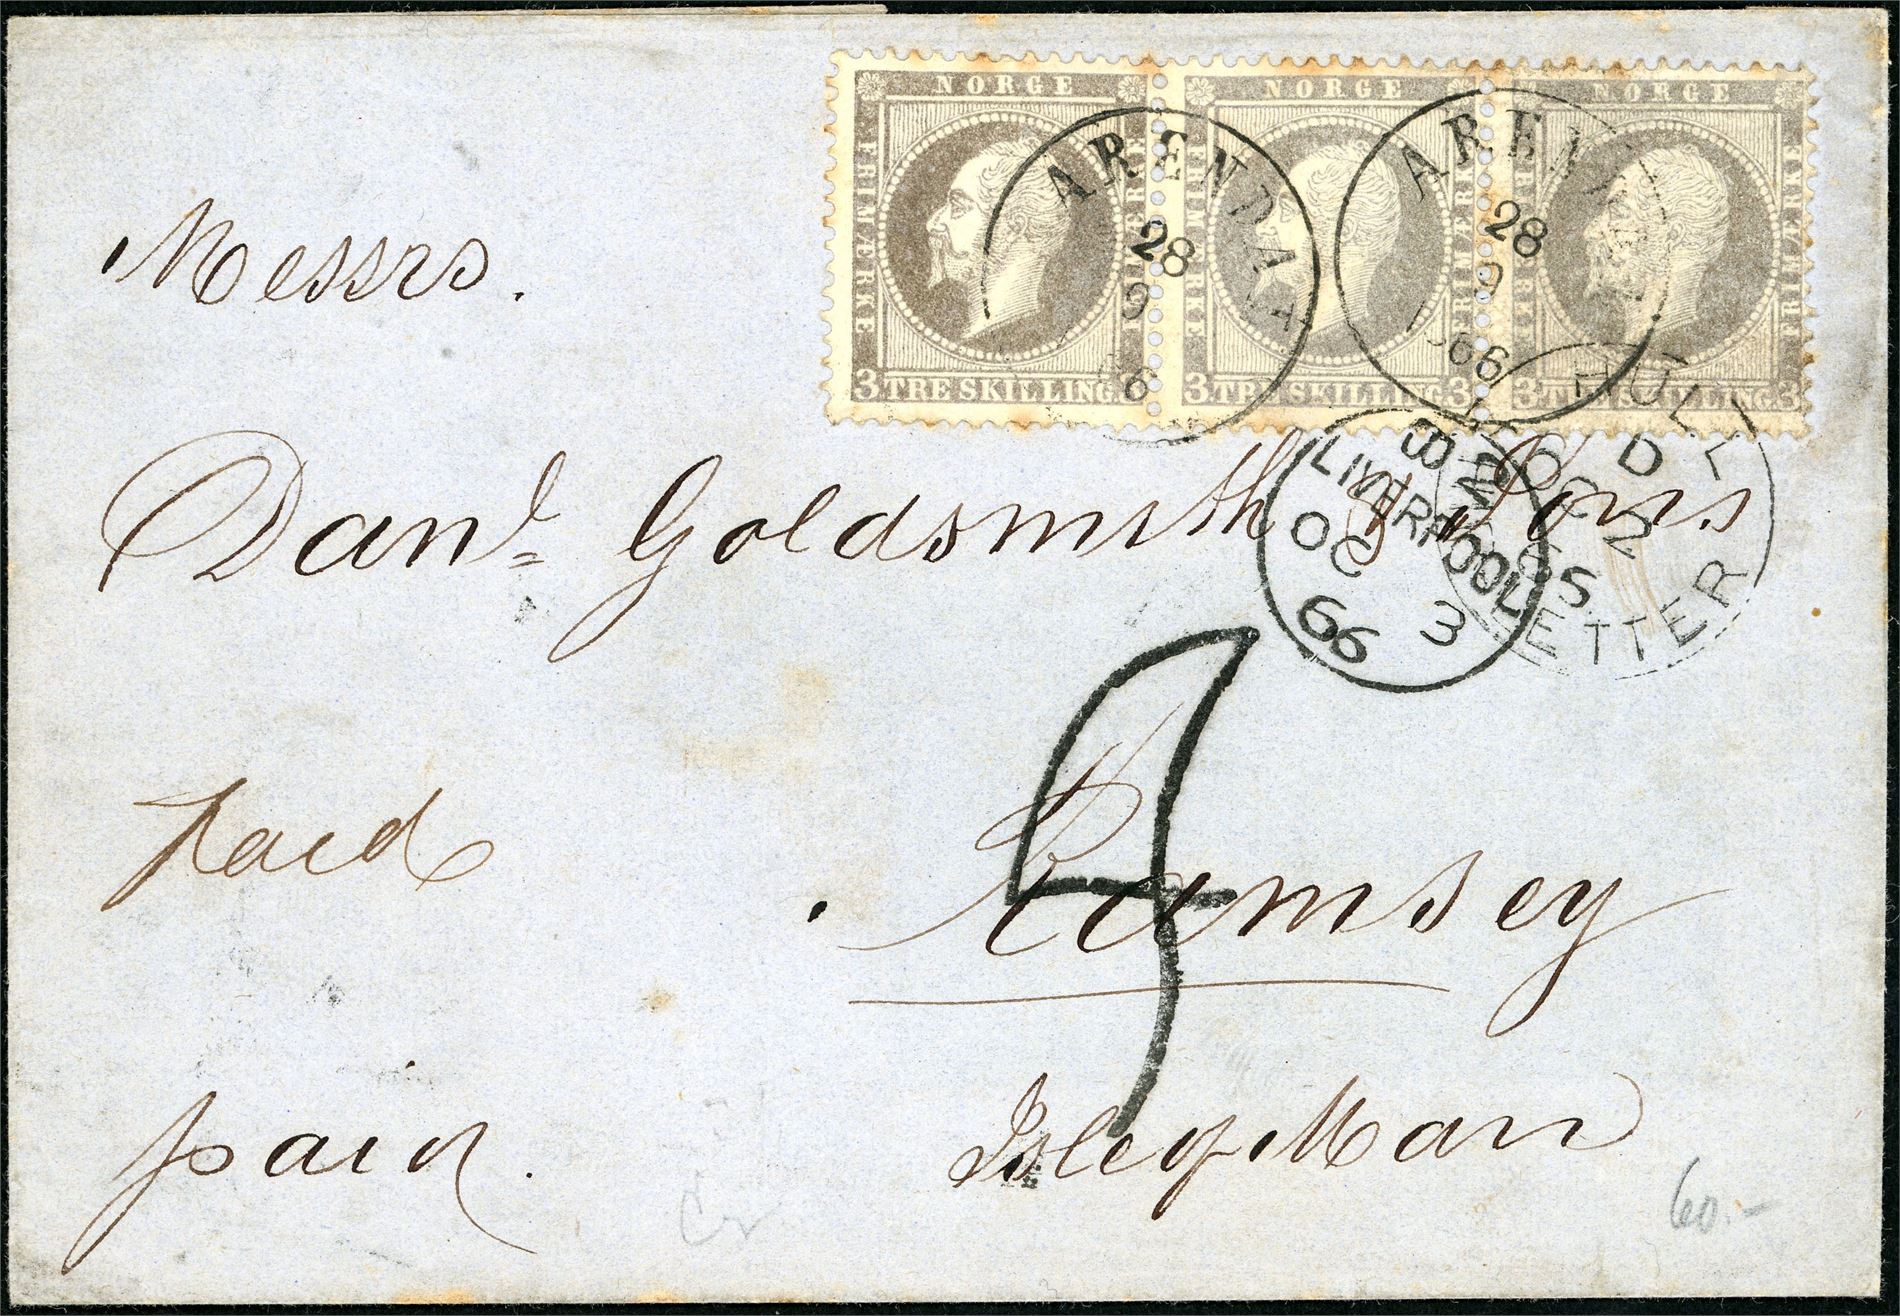 NORGE NORGE NORGE
FRIMÆRKE FRIMÆRKE FRIMÆRKE FRIMÆRKE FRIMÆRKE FRIMÆRKE
3 TRE SKILLING. 3 3 TRE SKILLING. 3 3 TRE SKILLING. 3
ARENDAL
28
9
66
AREN
28
9
866
HULL
D
OC 2
66
LETTER
LIVERPOOL
OC 3
66
Messrs.
Danl. Goldsmith & Sons
Paid
Ramsey
paid.
Isle of Man
60.-